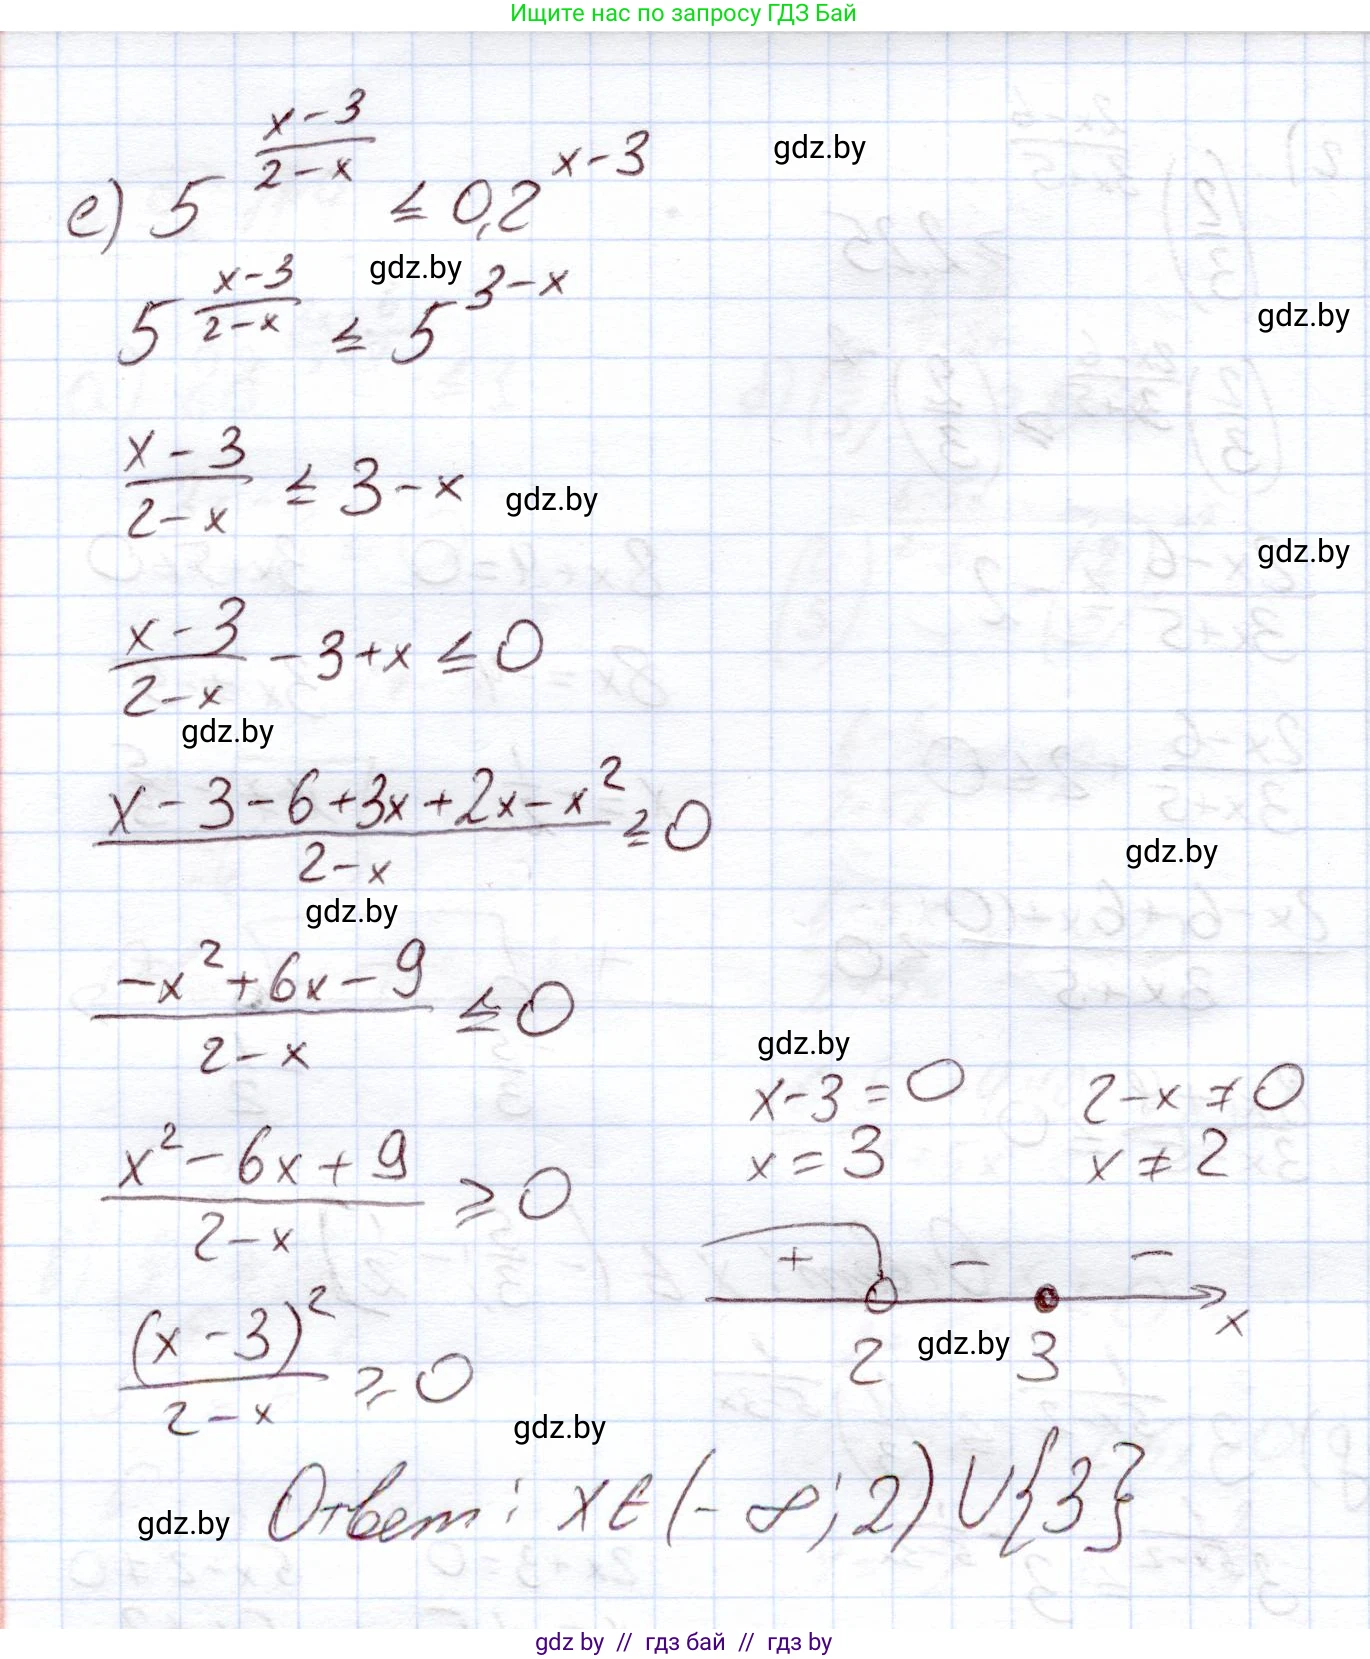 Ищите нас по запросу ГДЗ Бай
е) 5^((x-3)/(2-x)) ≤ 0,2^(x-3)
gdz.by
5^((x-3)/(2-x)) ≤ 5^(3-x)
gdz.by
gdz.by
(x-3)/(2-x) ≤ 3-x
gdz.by
gdz.by
(x-3)/(2-x) -3+x ≤ 0
gdz.by
(x-3-6+3x+2x-x²)/(2-x) ≥ 0
gdz.by
gdz.by
(-x²+6x-9)/(2-x) ≤ 0
gdz.by
x-3=0 2-x≠0
x=3 x≠2
(x²-6x+9)/(2-x) ≥ 0
+ - -
2 3 x
gdz.by
(x-3)²/(2-x) ≥ 0
gdz.by
Ответ: x∈(-∞;2)∪{3}
gdz.by
gdz by // гдз бай // gdz by